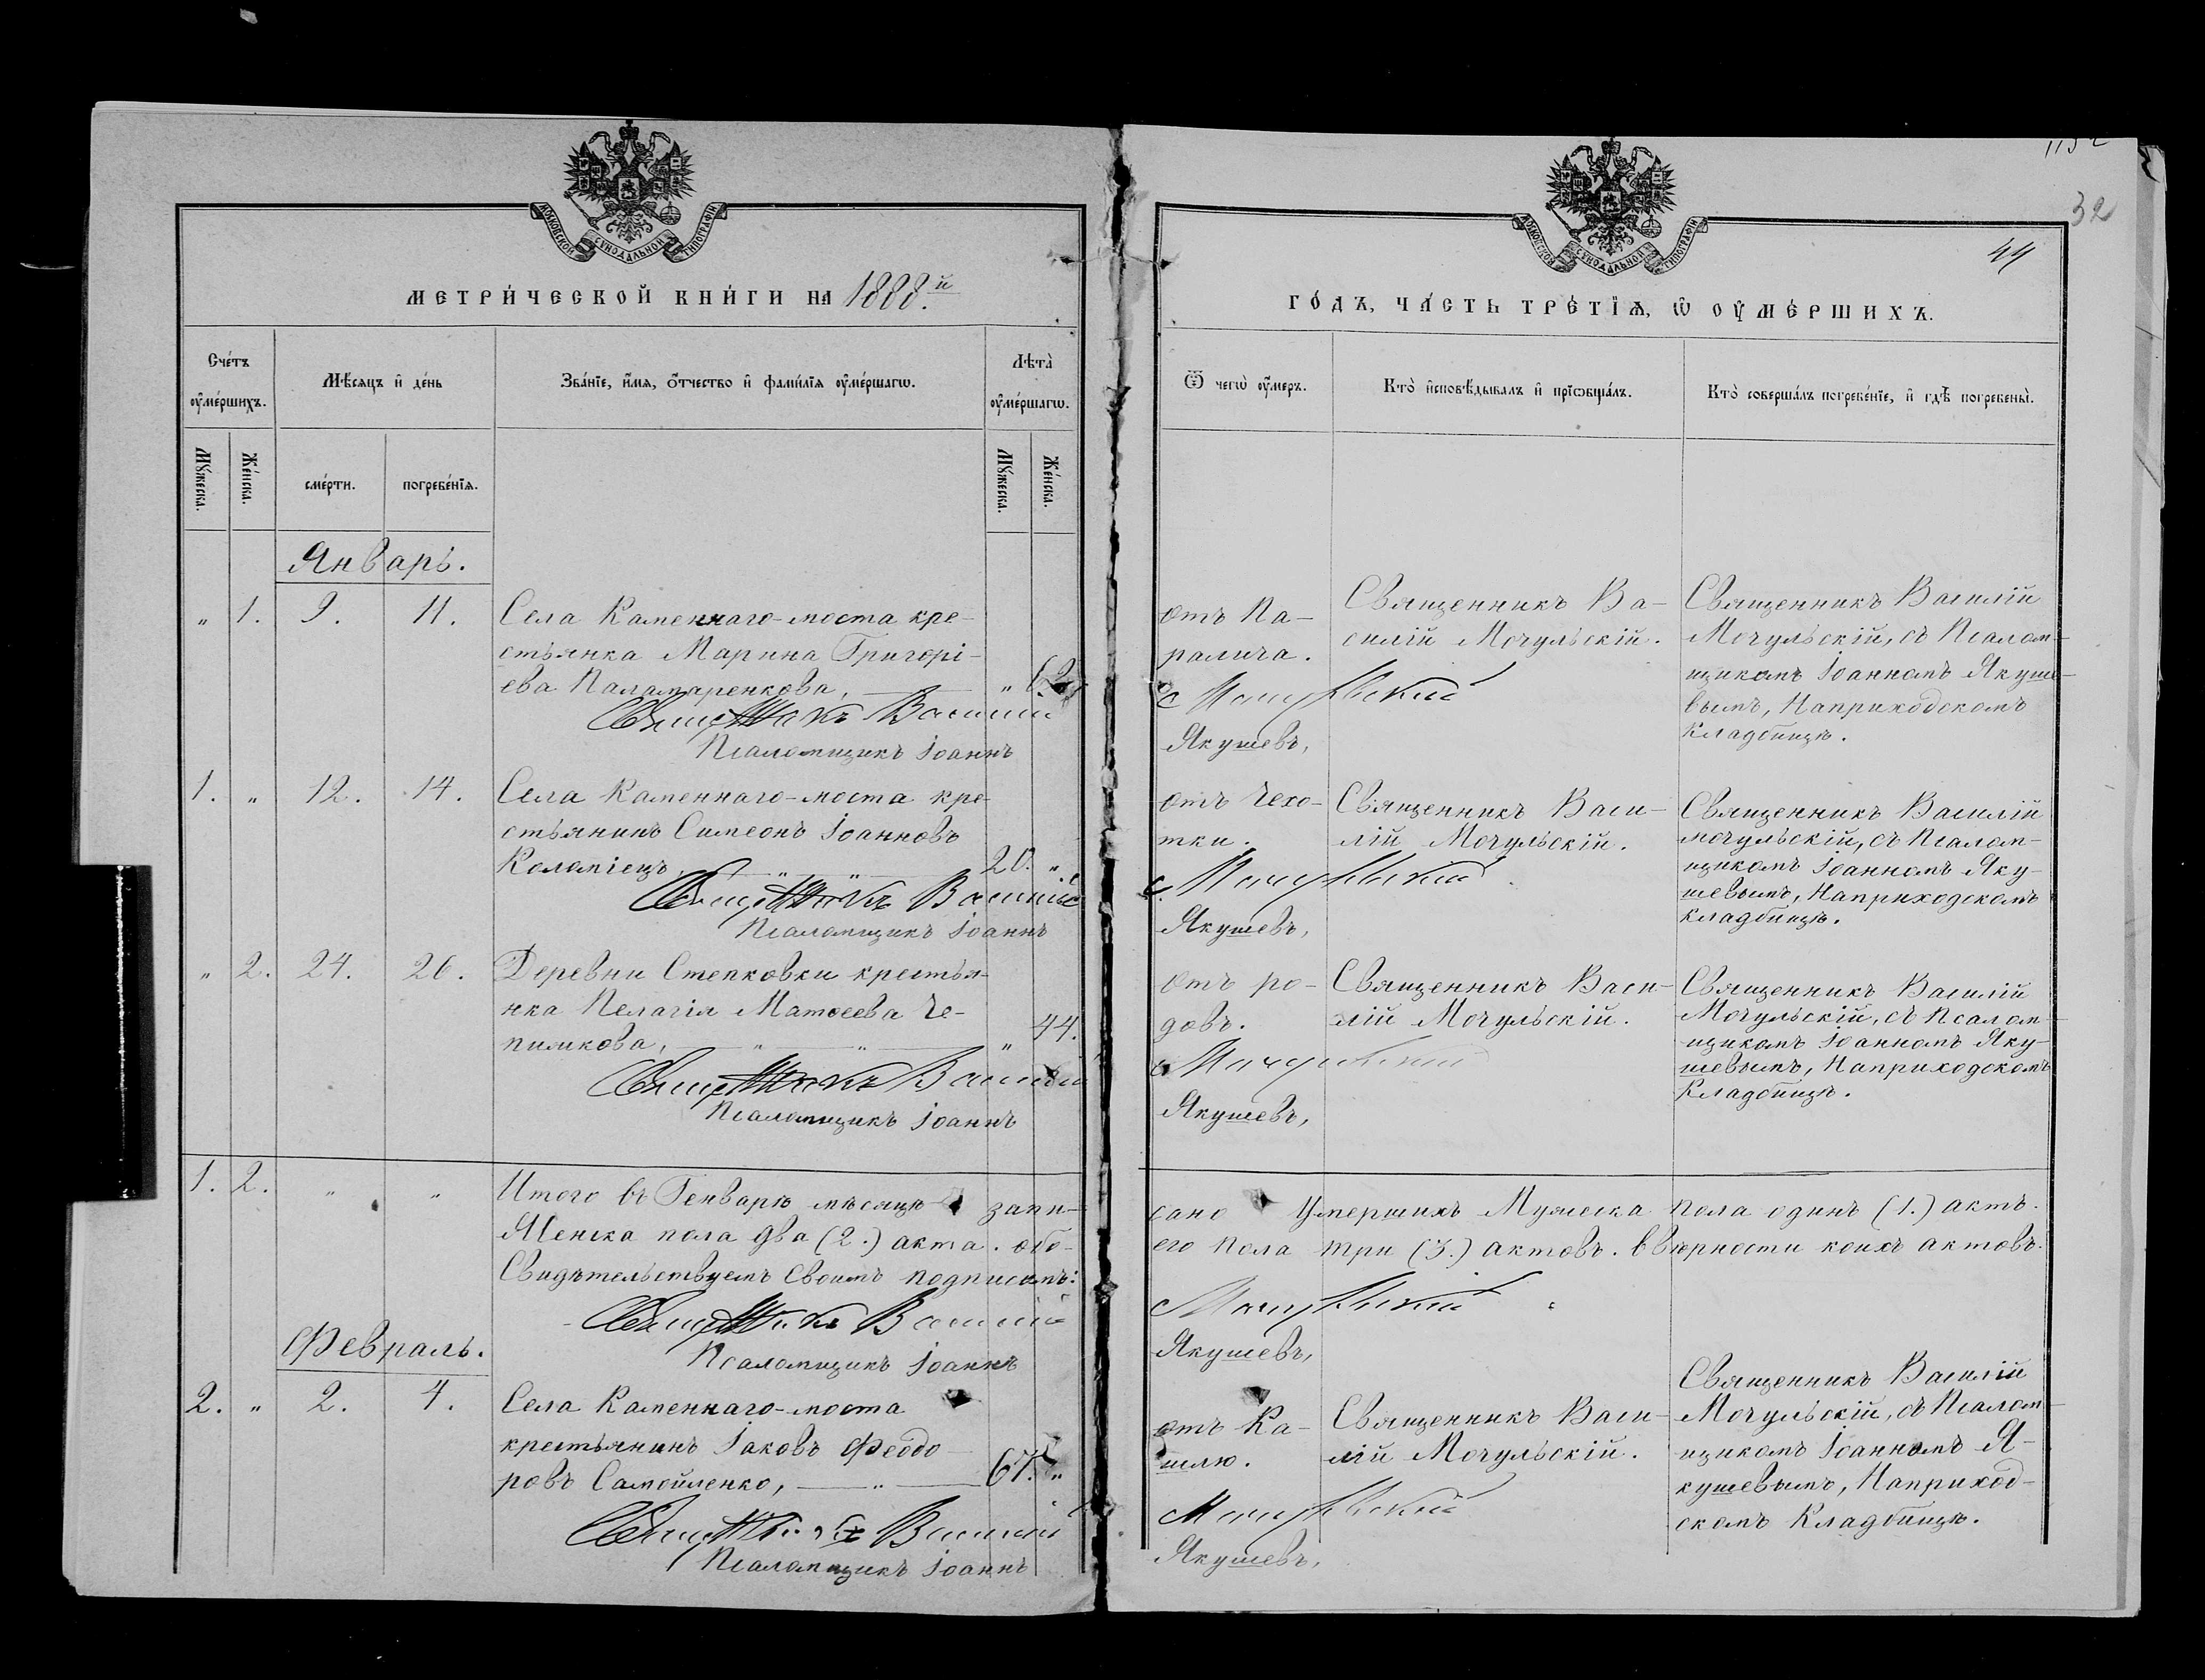 1152
32
44
МОСКОВСКОЙ СѴНОДАЛЬНОЙ ТИПОГРАФІИ
МОСКОВСКОЙ СѴНОДАЛЬНОЙ ТИПОГРАФІИ
МЕТРИ́ЧЕСКОЙ КНИ́ГИ НА 1888.й
ГО́ДЪ, ЧА́СТЬ ТРЕ́ТІѦ, Ѽ ОУ҆МЕ́РШИХЪ.
Сче́тъ
оу҆ме́ршихъ.
Мѣ́сяцъ и҆ де́нь
Зва́нїе, и҆́мѧ, ѻ҆́тчество и҆ фами́лїѧ оу҆ме́ршагѡ.
Лѣта̀
оу҆ме́ршагѡ.
Ѿ чегѡ̀ оу҆́меръ.
Кто̀ и҆сповѣ́дывалъ и҆ прїѡбща́лъ.
Кто̀ соверша́лъ погребе́нїе, и҆ гдѣ̀ погребены̀.
Мꙋ́жеска.
Же́нска.
сме́рти.
погребе́нїѧ.
Мꙋ́жеска.
Же́нска.
Январь.
„ 1. 9. 11. Села Каменнаго-моста кре-
стьянка Марина Григорі-
ева Паламаренкова, „
Священникъ Василий
Псаломщикъ Іоаннъ
отъ Па-
ралича.
Мочульский
Якушевъ,
Священникъ Ва-
силій Мочульскій.
Священникъ Василій
Мочульскій, съ Псалом-
щикомъ Іоанномъ Якуше-
вымъ, На приходскомъ
Кладбищѣ.
1. „ 12. 14. Села Каменнаго-моста кре-
стьянинъ Симеонъ Іоанновъ
Коломіецъ, „ „ 20. „
Священникъ Василий
Псаломщикъ Іоаннъ
отъ Чехо-
тки.
Мочульский
Якушевъ,
Священникъ Васи-
лій Мочульскій.
Священникъ Василій
мочульскій, съ Псалом-
щикомъ Іоанномъ Яку-
шевымъ, На приходскомъ
кладбищѣ.
„ 2. 24. 26. Деревни Степковки крестья-
нка Пелагія Матѳеева Че-
пижкова, „ „ „ 44.
Священникъ Василий
Псаломщикъ Іоаннъ
отъ ро-
довъ.
Мочульский
Якушевъ,
Священникъ Васи-
лій Мочульскій.
Священникъ Василій
Мочульскій, съ Псалом-
щикомъ Іоанномъ Яку-
шевымъ, На приходскомъ
Кладбищѣ.
1. 2. „ „ Итого въ Генварѣ мѣсяцѣ запи-
сано Умершихъ Мужеска пола одинъ (1.) актъ.
Женска пола два (2.) акта. обо-
его пола три (3.) актовъ. в вѣрности коихъ актовъ.
Свидѣтельствуемъ Своимъ подписомъ:
Священникъ Василий
Мочульский
Псаломщикъ Іоаннъ
Якушевъ,
Февраль.
2. „ 2. 4. Села Каменнаго-моста
крестьянинъ Іаковъ Феодо-
ровъ Самойленко, „ 67. „
Священникъ Василий
Псаломщикъ Іоаннъ
отъ Ка-
шлю.
Мочульский
Якушевъ,
Священникъ Васи-
лій Мочульскій.
Священникъ Василій
Мочульскій, съ Псалом-
щикомъ Іоанномъ Я-
кушевымъ, На приход-
скомъ Кладбищѣ.